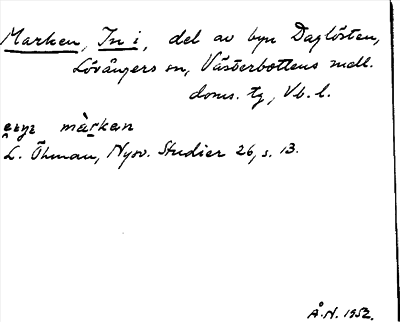 Marken, In i, del av byn Daglösten,
Lövångers sn, Västerbottens mell.
doms. tg, Vb. l.
màrkan
L. Öhman, Nysv. Studier 26, s. 13.
Å.N. 1952.